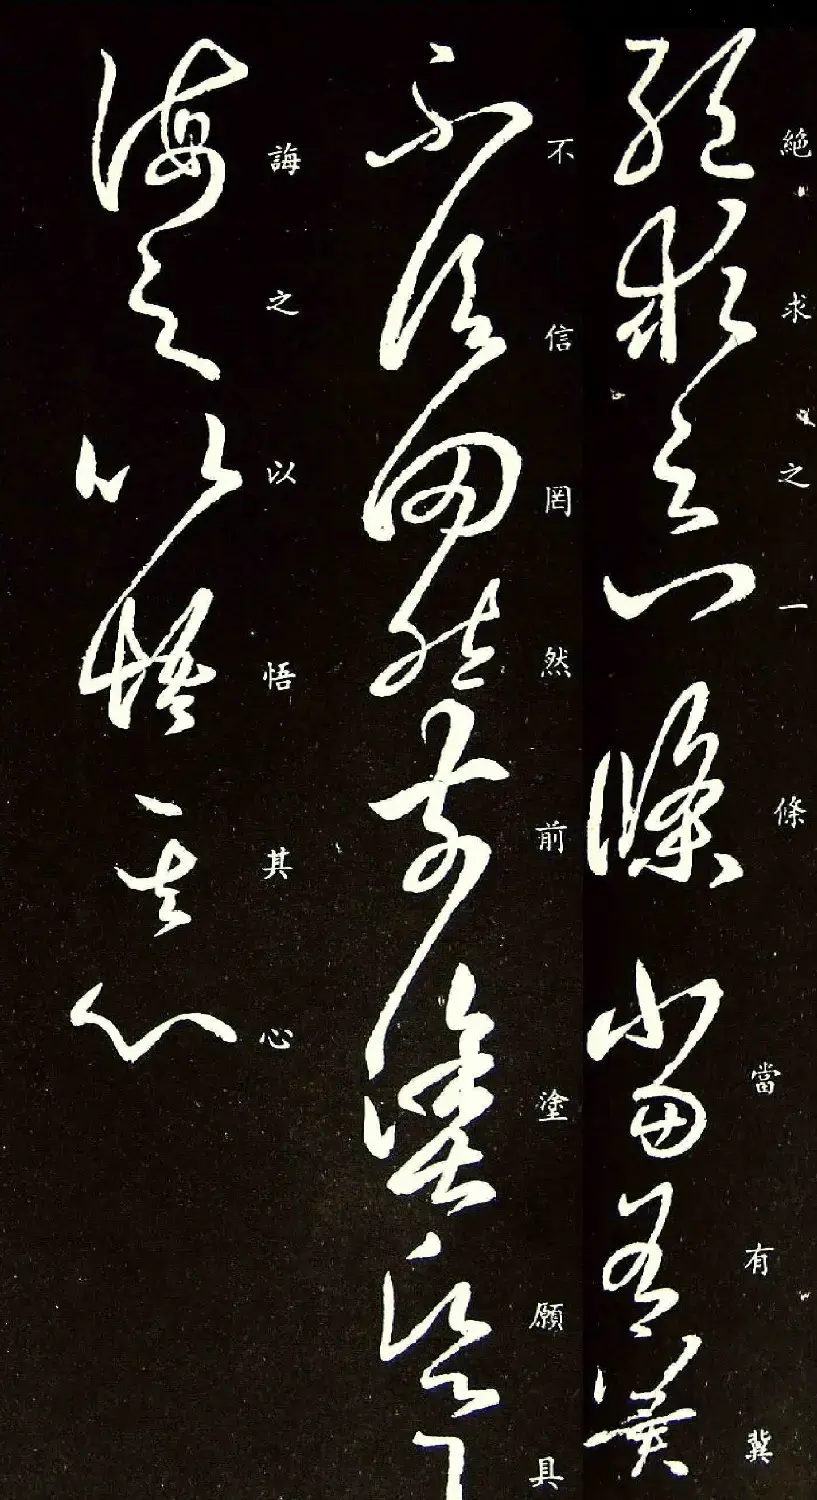 絶求之一條當有冀
不信罔然前塗願具
誨之以悟其心